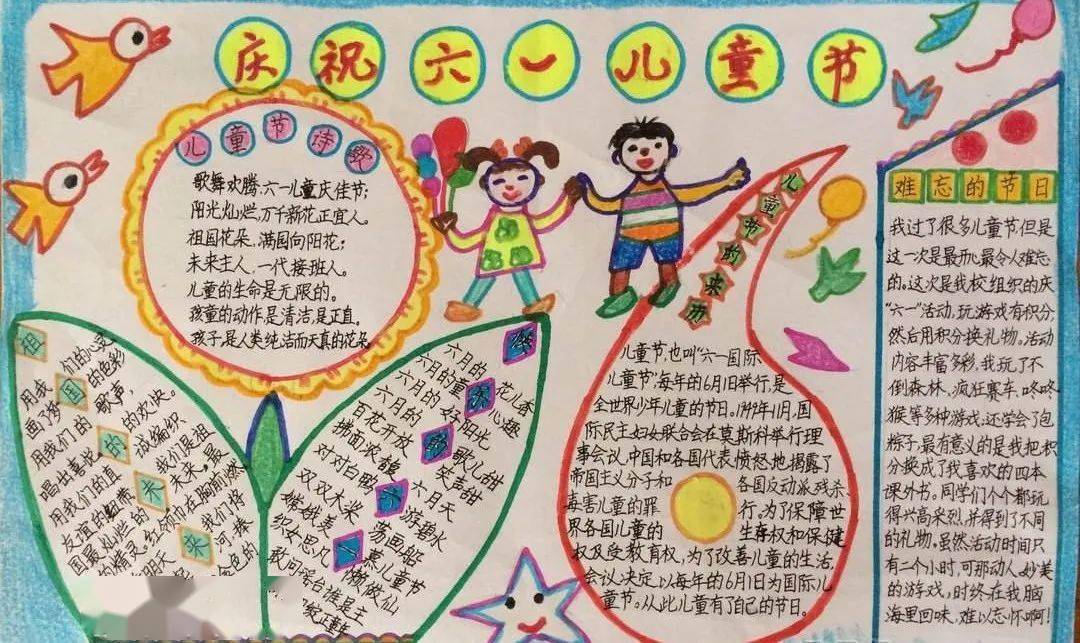 庆祝六一儿童节
儿童节诗歌
歌舞欢腾,六一儿童庆佳节;
阳光灿烂,万千新花正宜人。
祖国花朵,满园向阳花;
未来主人,一代接班人。
儿童的生命是无限的。
孩童的动作是清洁,是正直。
孩子,是人类纯洁而天真的花朵
祖国的未来
用我们的心灵
画了好的色彩
用我们的歌声,
唱出喜悦的欢快。
用我们的真
友谊的
国最灿烂的未来。
的精灵。
我们是祖
红领巾在胸前燃
我们将
六月的花儿香
六月的童心趣
六月的好阳光
百花开放笑声甜
歌儿甜
拂面浓馥六月天
对对白鸥游碧水
双双木桨荡画船
嫦娥羡慕儿童节
织女思凡懒做仙
敢问瑶台谁是主
儿童节的来历
儿童节,也叫“六一国际
儿童节”,每年的6月1日举行,是
全世界少年儿童的节日。1949年11月,国
际民主妇女联合会在莫斯科举行理
事会议,中国和各国代表愤怒地揭露了
帝国主义分子和各国反动派残杀、
毒害儿童的罪行。为了保障世
界各国儿童的生存权和保健
权及受教育权,为了改善儿童的生活,
会议决定以每年的6月1日为国际儿
童节。从此儿童有了自己的节日。
难忘的节日
我过了很多儿童节,但是
这一次是最开心最令人难忘
的。这次是我校组织的庆
“六一”活动,玩游戏有积分,
然后用积分换礼物。活动
内容丰富多彩,我玩了不
倒森林、疯狂赛车、咚咚
猴等多种游戏,还学会了包
粽子,最有意义的是我把积
分换成了我喜欢的四本
课外书。同学们个个都玩
得兴高采烈,并得到了不同
的礼物。虽然活动时间只
有二个小时,可那动人、妙美
的游戏,时终在我脑
海里回味,难以忘怀啊!